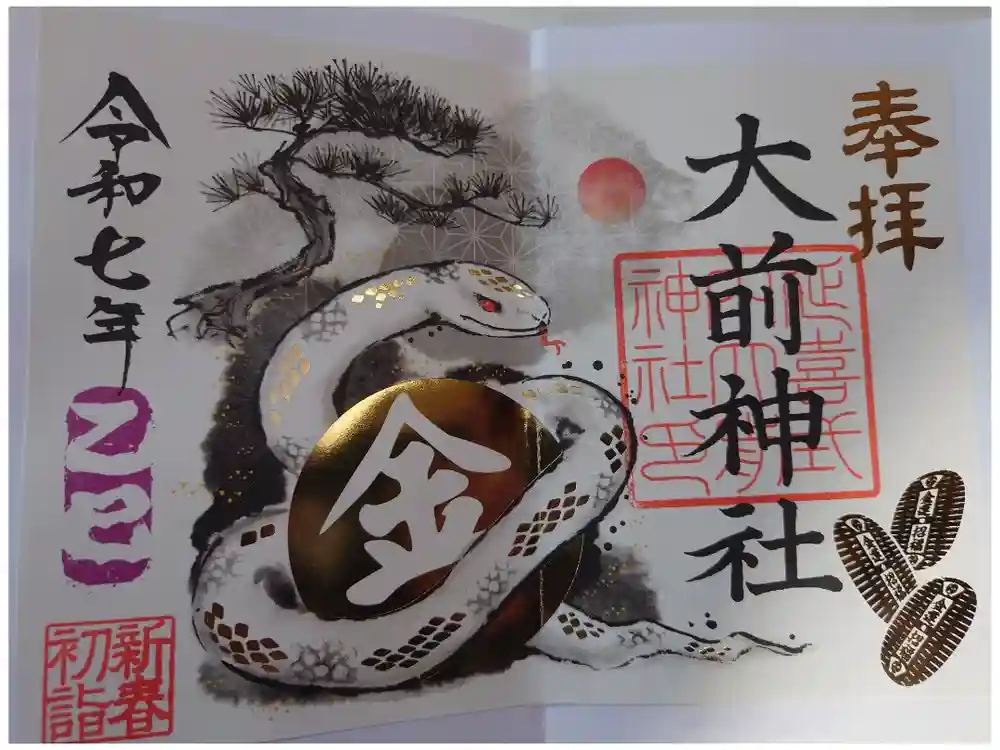 奉拝
大前神社
延喜式
内大前
神社印
金
令和七年
乙巳
新春
初詣